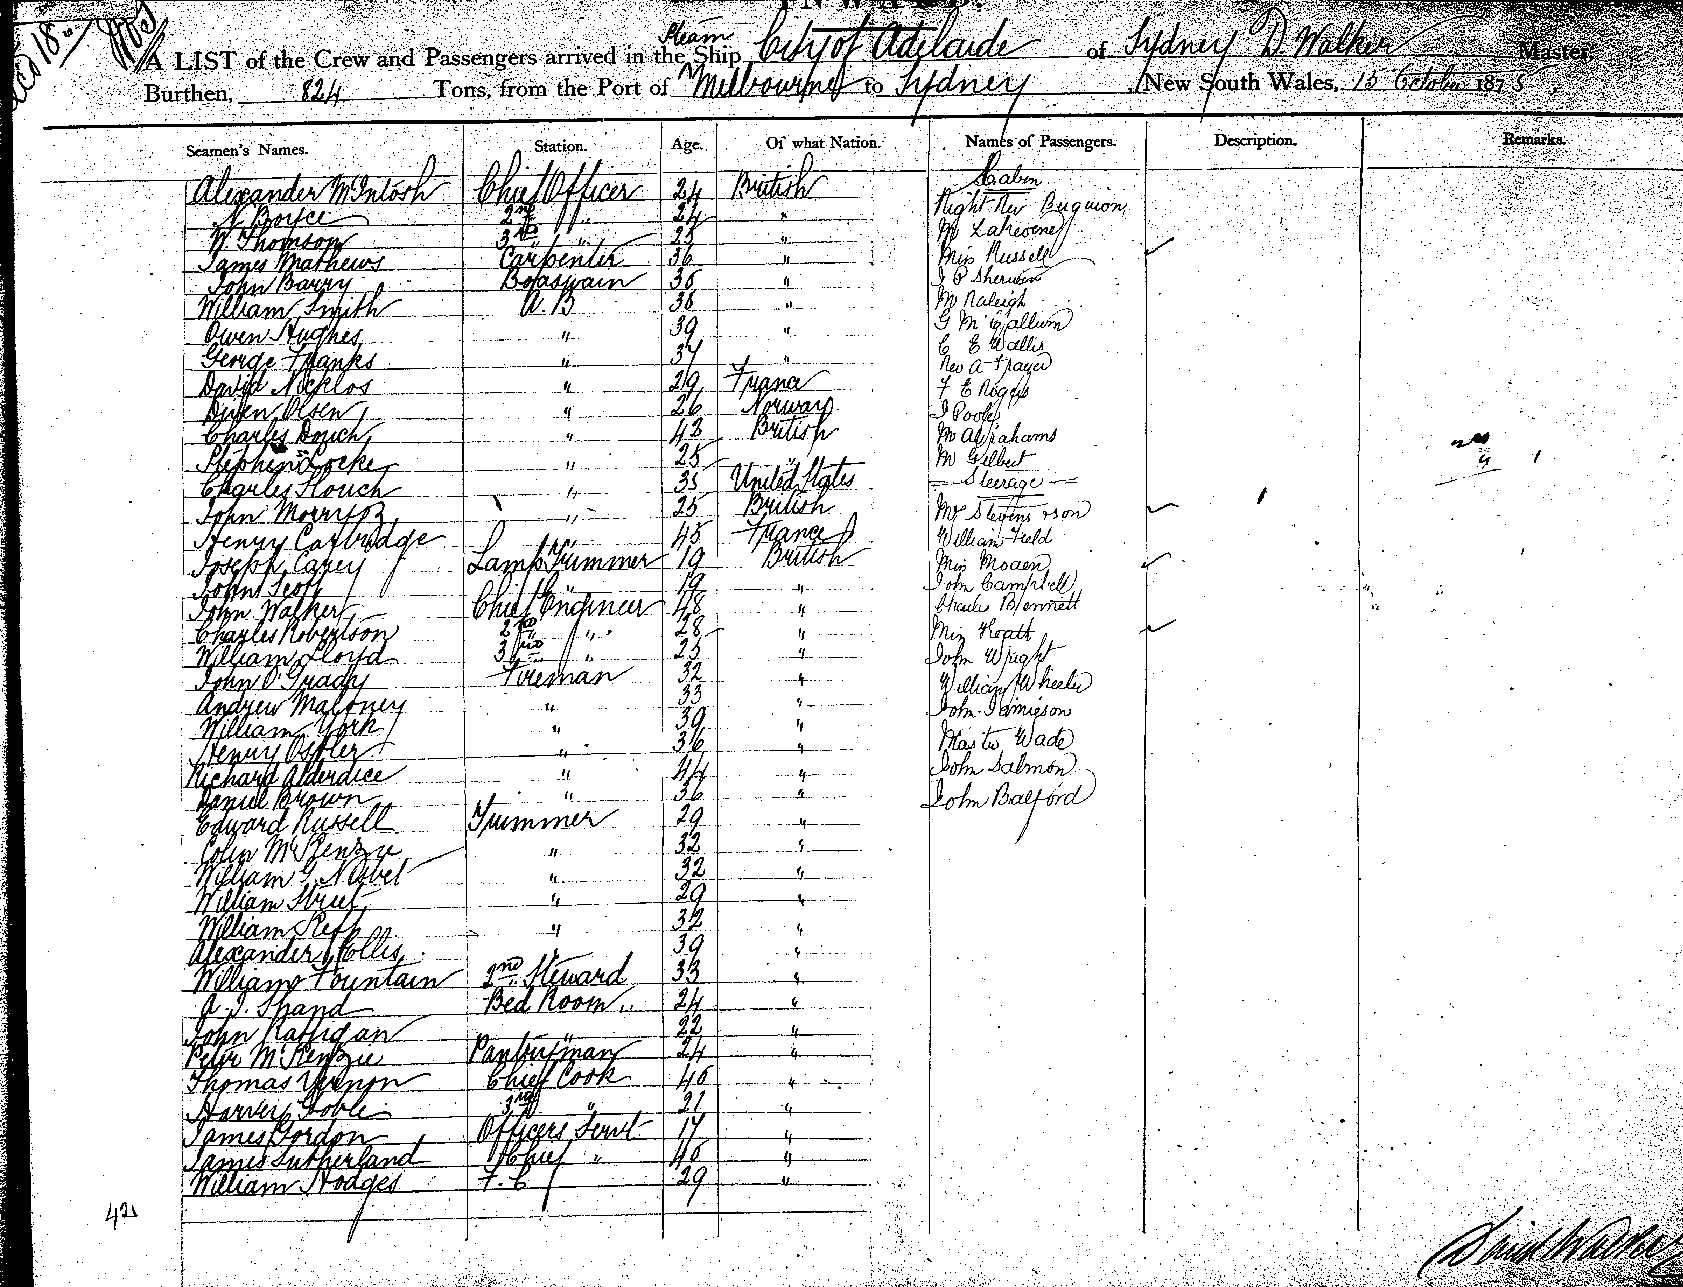 INWARD.
A LIST of the Crew and Passengers arrived in the Steam Ship City of Adelaide of Sydney D. Walker Master
Burthen, 824 Tons, from the Port of Melbourne to Sydney New South Wales, 15 October 1875
Seamen's Names. Station. Age. Of what Nation. Names of Passengers. Description. Remarks.
Alexander McIntosh Chief Officer 24 British Cabin
N Boyce 2nd " 24 " Right Rev
W. Thomson 3rd " 25 "
James Mathews Carpenter 36 " Miss Russell
John Barry Boaswain 36 " J P Sherwin
William Smith A.B 38 " Mr Raleigh
Owen Hughes " 39 " G McCallum
George Franks " 37 " C E Wallis
David Nicklos " 29 France Rev A Frazer
Olsen " 26 Norway F E Rogers
Charles Douch " 43 British J Poole
Stephen Locke " 25 " Mr Abrahams
Charles Stouch " 35 United States Mr Gilbert
John " 25 British Steerage
Henry Cartridge " 45 France Mr Stevenson
Joseph Carey Lamp Trimmer 19 British William Field
John Scott " 19 " Miss
John Walker Chief Engineer 48 " John Campbell
Charles Robertson 2nd " 28 " Charles Bennett
William Lloyd 3rd " 25 " Miss
John O'Grady Fireman 32 " John Wright
Andrew Maloney " 33 " William Wheeler
William York " 39 " John Jamieson
Henry Ostler " 36 " Master Wade
Richard Alderdice " 44 " John Salmon
Daniel Brown " 36 " John Balford
Edward Russell Trimmer 29 "
Colin McKenzie " 32 "
William G. Nisbet " 32 "
William Street " 29 "
William " 32 "
Alexander Ellis " 39 "
William Fountain 2nd Steward 33 "
A. J. Shand Bed Room " 24 "
John Rattigan " 22 "
Peter McKenzie Pantryman 24 "
Thomas Vernon Chief Cook 40 "
Harvey Goble 3rd " 21 "
James Gordon Officers Servt 17 "
James Sutherland Chief " 40 "
William Hodges F. C 29 "
42
David Walker